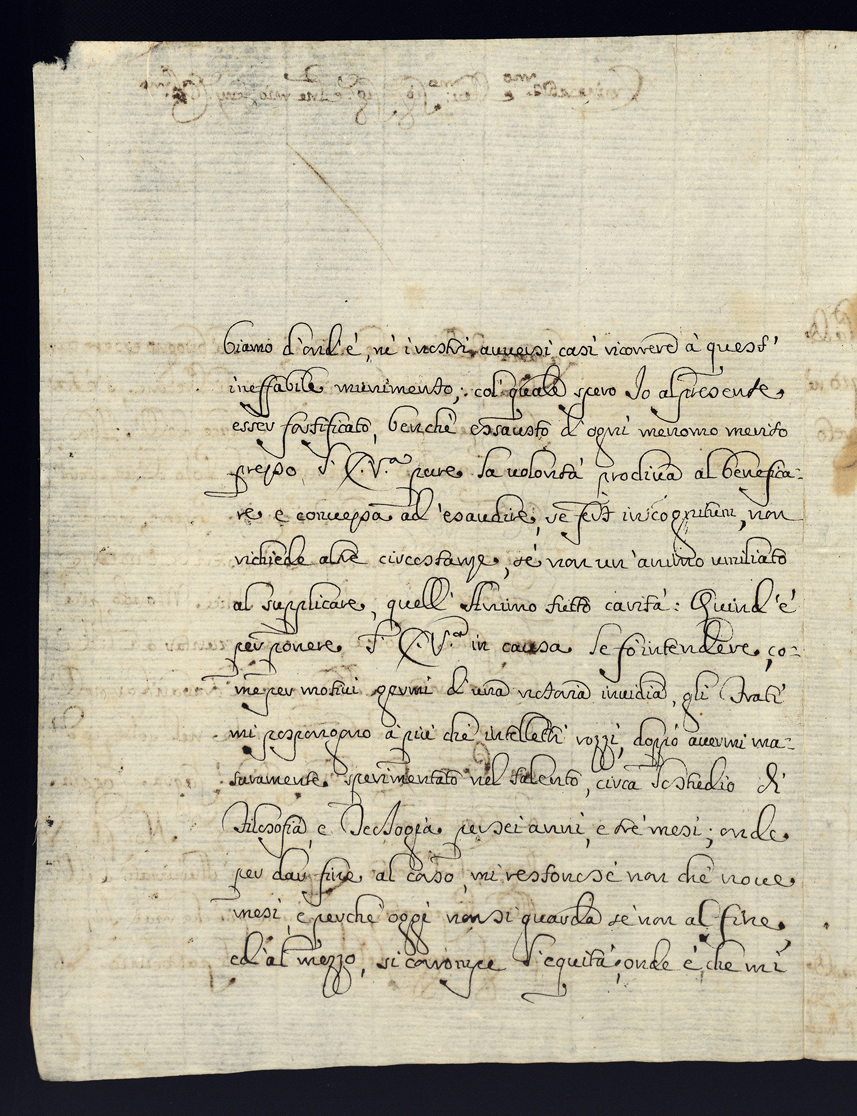 biamo d'ond'è, nè i nostri auuersi casi ricorrere à quest'
ineffabile munimento, col quale spero Io al presente
esser fortificato, benche essausto d'ogni menomo merito
presso l'E.V.ª pure la uolontà procliua al benefica-
re e conuessa ad'esaudire, se fu incognitum, non
richiede altre circostanze, sè non un'animo umiliato
al supplicare, quell'Animo tutto carità: Quind'è
per ponere l'E.V.ª in causa le fò intendere, co-
me per motiui germi d'una notoria inuidia, gli Frati
mi pospongono à più che intelletti rozzi, doppò auermi ma-
turamente sperimentato nel talento, circa lo studio di
Filosofia, e Teologia per sei anni, e trè mesi; onde
per dar fine al corso, mi restono sè non che noue
mesi, e perche oggi non si guarda sè non al fine
ed'al mezzo, si corrompe l'equità; onde è, che mi